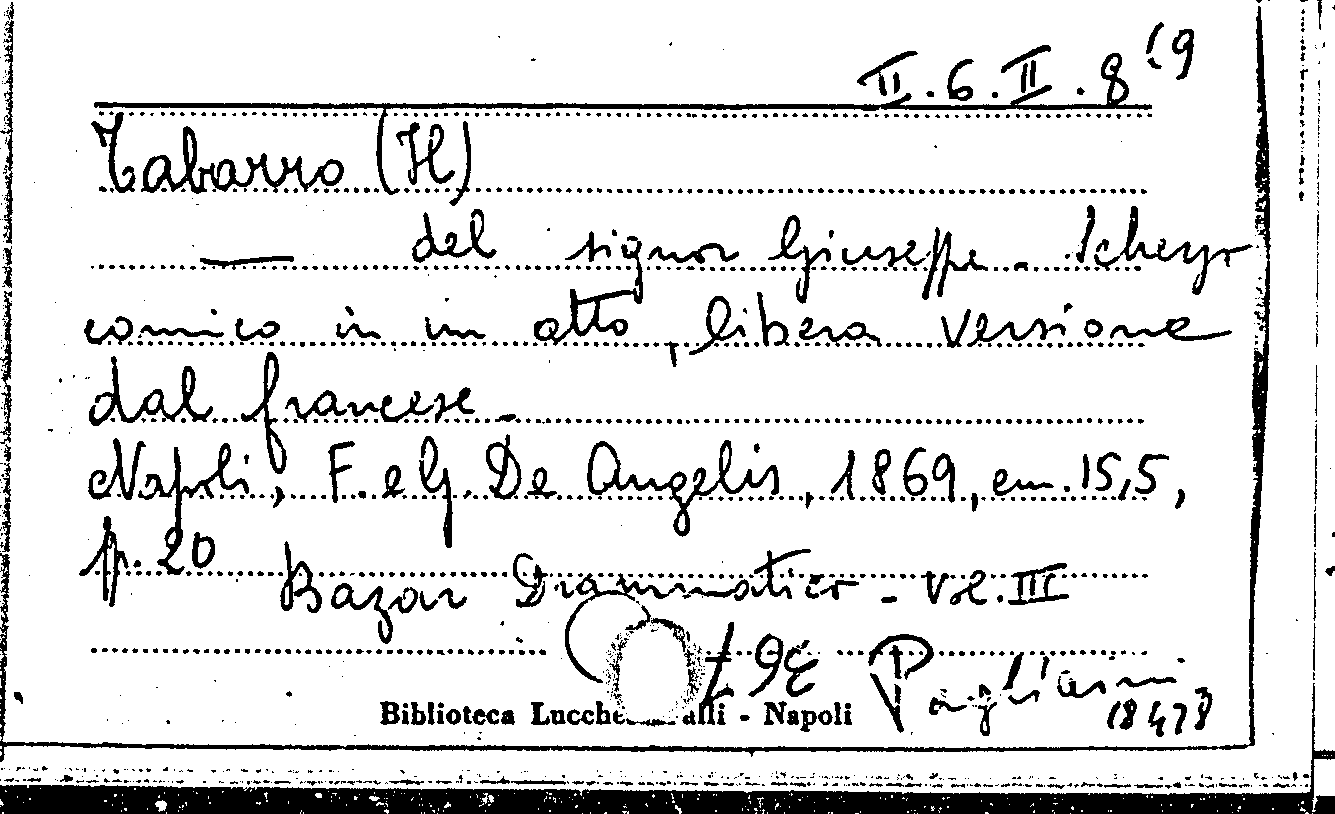 II.6.II.8 19
Tabarro (Il)
— del signor Giuseppe - Scherzo
comico in un atto, libera versione
dal francese -
Napoli, F. e G. De Angelis, 1869, cm. 15,5,
p. 20
Bazar Drammatico - Vol. III
Pagliaini
18478
Biblioteca Lucchesi Palli - Napoli